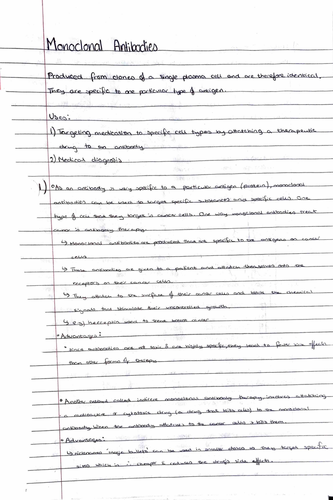 Monoclonal Antibodies
Produced from clones of a single plasma cell and are therefore identical.
They are specific to one particular type of antigen.
Uses:
1) Targeting medication to specific cell types by attaching a therapeutic
drug to an antibody
2) Medical diagnosis
1.) As an antibody is very specific to a particular antigen (protein), monoclonal
antibodies can be used to target specific substances and specific cells. One
type of cell that they target is cancer cells. One way monoclonal antibodies treat
cancer is antibody therapy:
↳ Monoclonal antibodies are produced that are specific to the antigens on cancer
cells
↳ These antibodies are given to a patient and attach themselves onto the
receptors on their cancer cells.
↳ They attach to the surface of their cancer cells and block the chemical
signals that stimulate their uncontrolled growth.
↳ e.g) herceptin used to treat breast cancer
• Advantages:
• Since antibodies are not toxic & are highly specific, they lead to fewer side effects
than other forms of therapy.
• Another method called indirect monoclonal antibody therapy, involves attaching
a radioactive or cytotoxic drug (a drug that kills cells) to the monoclonal
antibody. When the antibody attaches to the cancer cells it kills them.
• Advantages:
↳ 'magic bullets' can be used in smaller doses as they target specific
sites which is cheaper & reduces the drug's side effects.